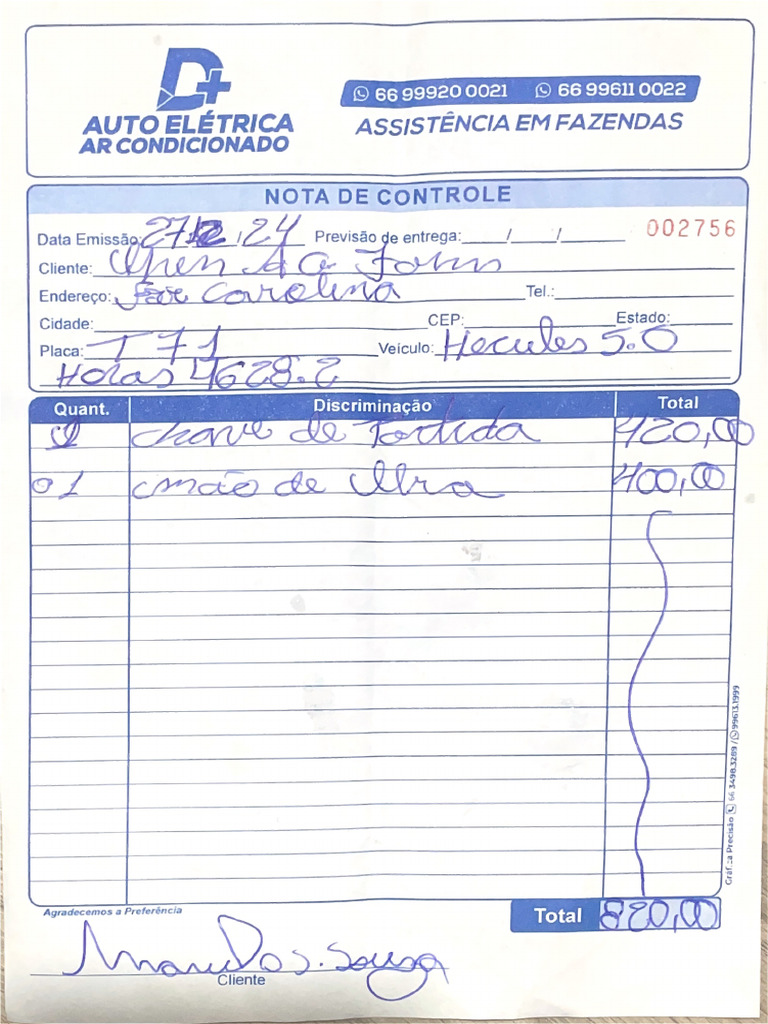 D+
AUTO ELÉTRICA
AR CONDICIONADO
66 99920 0021 66 99611 0022
ASSISTÊNCIA EM FAZENDAS
NOTA DE CONTROLE
Data Emissão: 27/12/24 Previsão de entrega: / / 002756
Cliente:
Endereço: Faz Carolina Tel.:
Cidade: CEP: Estado:
Placa: T 71 Veículo: Hecules 5.0
Horas 4628.2
Quant. Discriminação Total
chave de Partida 420,00
01 mão de Obra 400,00
Agradecemos a Preferência
Total 820,00
S. Souza
Cliente
Gráfica Precisão 66 3498.3289 / 99613.1999